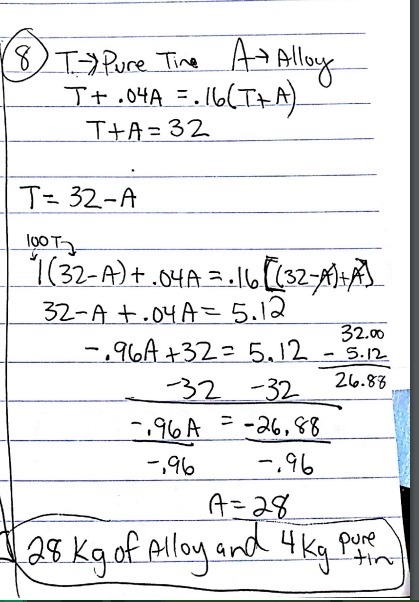 8 T→Pure Tine A→Alloy
T + .04A = .16(T+A)
T+A = 32
T = 32-A
100T
1(32-A) + .04A = .16[(32-A)+A]
32-A + .04A = 5.12
-.96A + 32 = 5.12
32.00
- 5.12
26.88
-32 -32
-.96A = -26.88
-.96 -.96
A = 28
28 Kg of Alloy and 4 Kg pure tin